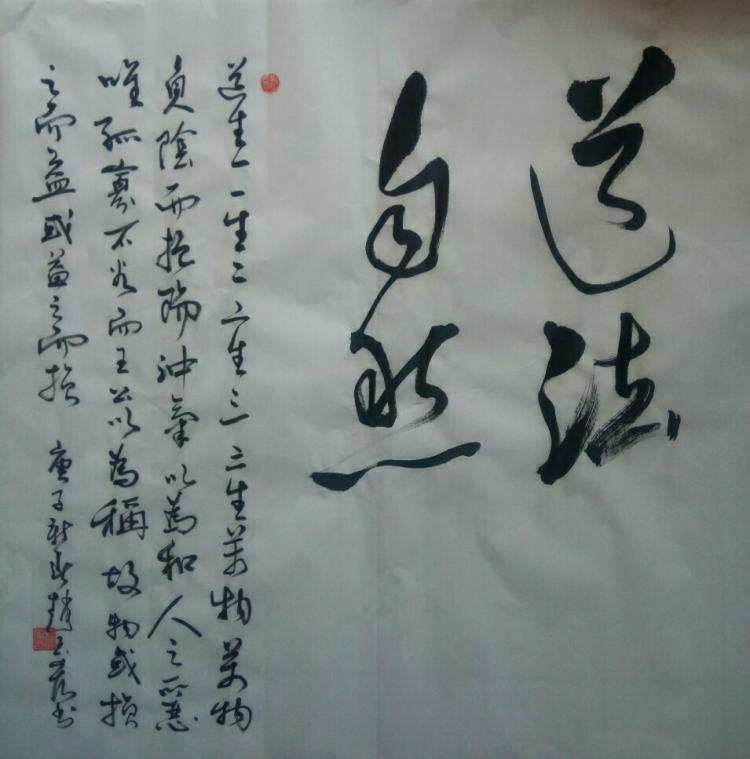 道法
自然
道生一一生二二生三三生萬物萬物
負陰而抱陽沖氣以為和人之所惡
唯孤寡不穀而王公以為稱故物或損
之而益或益之而損 庚子新春趙玉
書